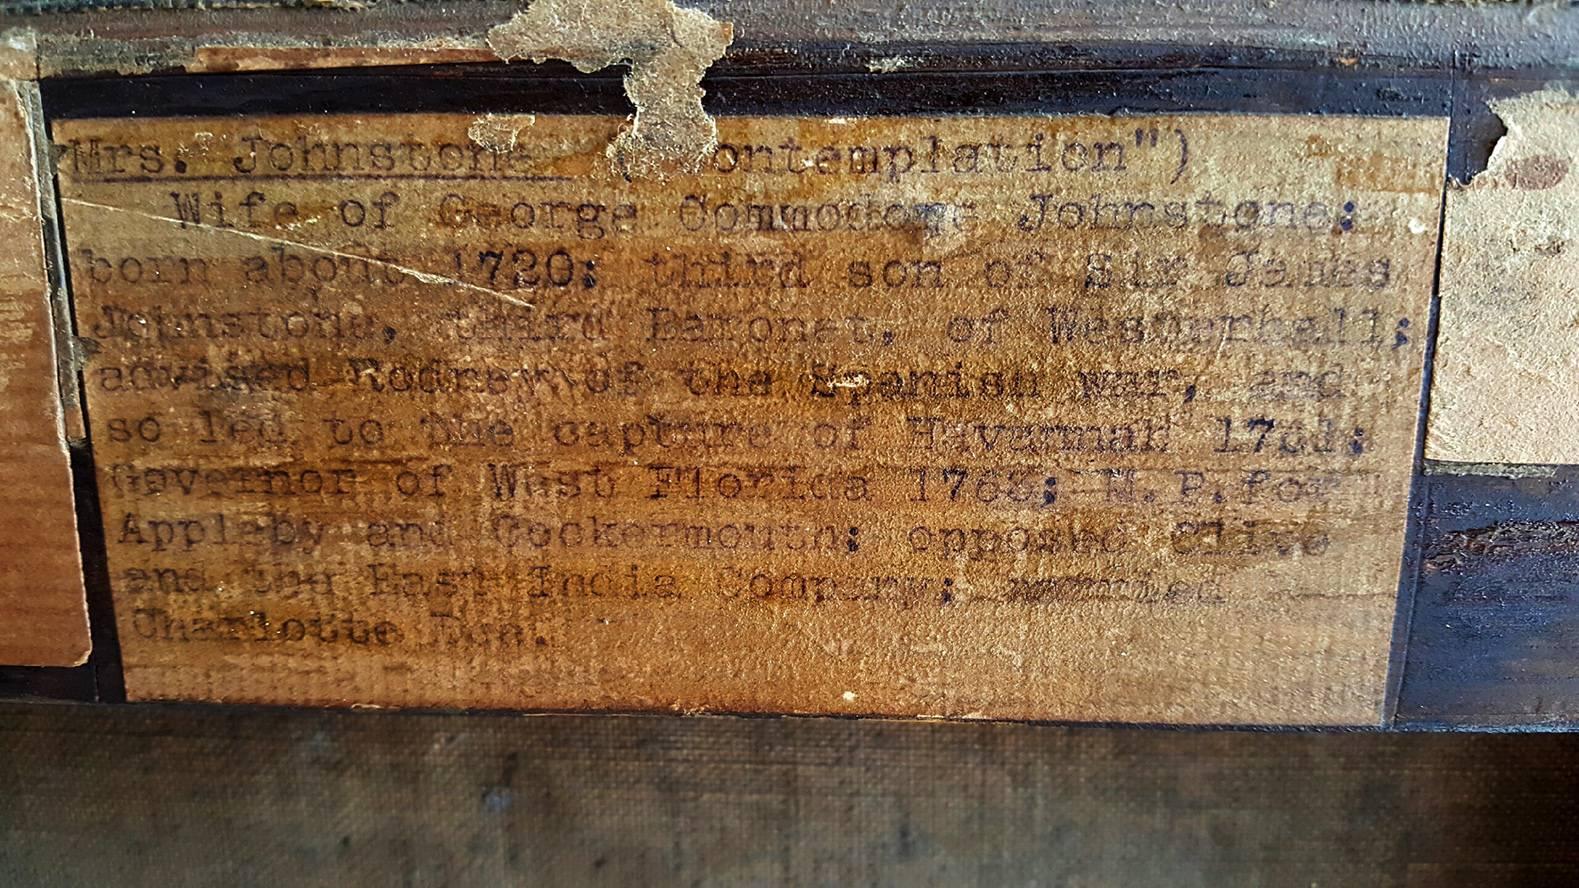 Mrs. Johnstone ("Contemplation")
Wife of George Commodore Johnstone;
born about 1720; third son of Sir James
Johnstone, third Baronet, of Westerhall;
advised Rodney of the Spanish war, and
so led to the capture of Havannah 1761;
Governor of West Florida 1763; M.P.for
Appleby and Cockermouth; opposed Clive
and the East India Company; married
Charlotte Dee.